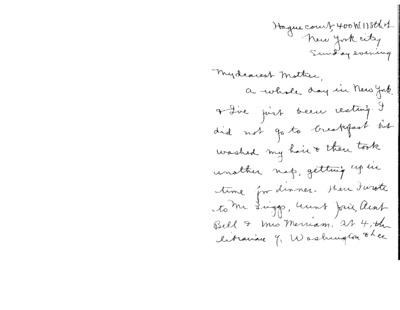 Hague court, 400 W. 118th st
New York city
Sunday evening
My dearest Mother,
A whole day in New York
& I've just been resting. I
did not go to breakfast but
washed my hair & then took
another nap, getting up in
time for dinner. Then I wrote
to Mr. Griggs, Aunt Josie, Aunt
Bell & Mrs Merriam. At 4, the
librarian of Washington & Lee